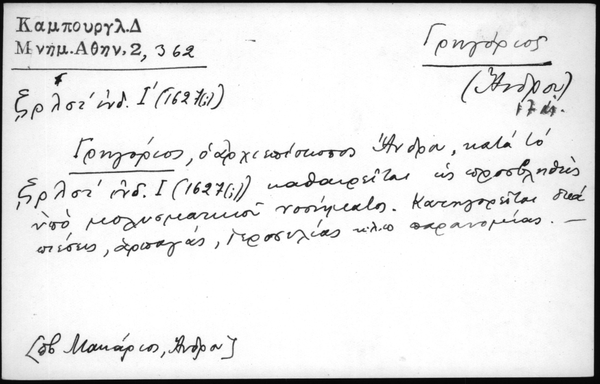 Καμπουργλ.Δ
Μνημ.Αθην.2, 362
Γρηγόριος
(Άνδρου)
17 αι.
ζρλστ' ἰνδ. Ι' (1627(;))
Γρηγόριος, ὁ ἀρχιεπίσκοπος Ἄνδρου, κατά τό
ζρλστ' ἰνδ. Ι (1627(;)) καθαιρεῖται ὡς προσβληθείς
ὑπό μολυσματικοῦ νοσήματος. Κατηγορεῖται διά
πιέσεις, ἁρπαγάς, ἱεροσυλίας κ.λ.π παρανομίας. —
[σβ Μακάριος, Άνδρου]